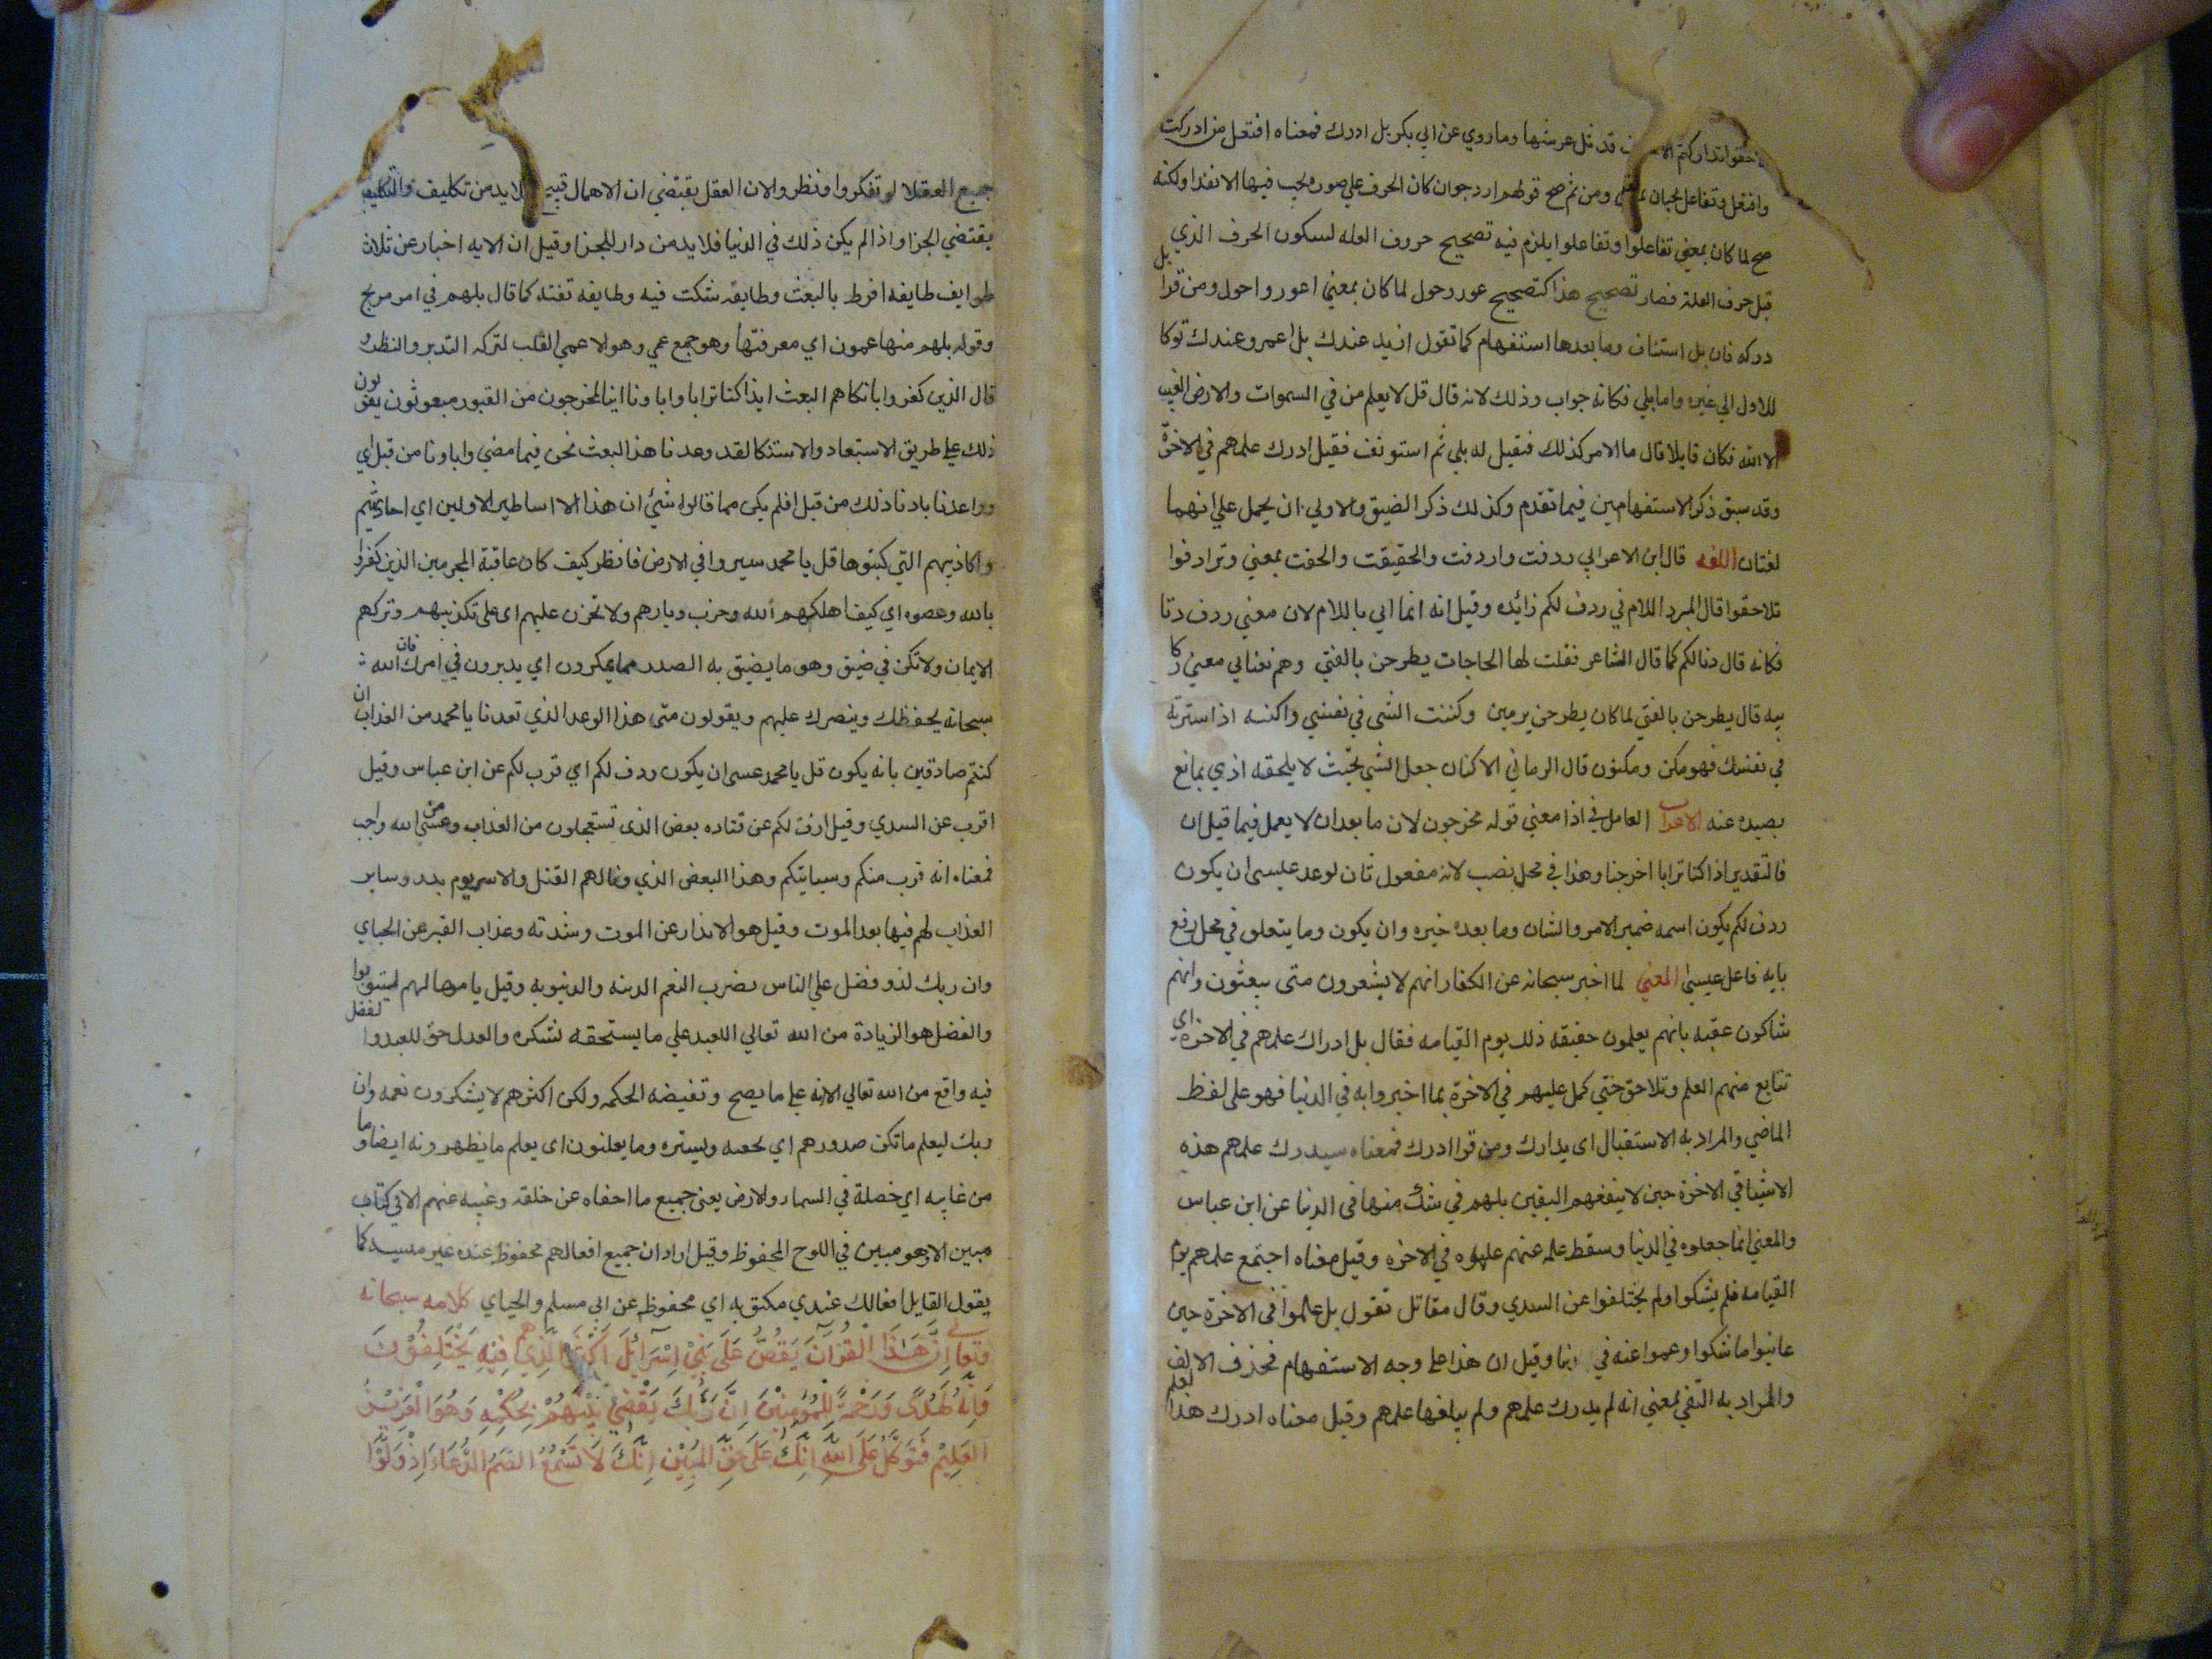 حقوا تداركتم الا قد ثل عرشها وما روي عن ابي بكر بل ادرك فمعناه افتعل من ادركت
وافتعل وتفاعل يجيان بمعني ومن ثم صح قولهم ازدوجوا وان كان الحرف علي صورة يجب فيها الانقلاب ولكنه
صح لما كان بمعني تفاعلوا وتفاعلوا يلزم فيه تصحيح حروف العله لسكون الحرف الذي
قبل حرف العلة فصار تصحيح هذا كتصحيح عور وحول لما كان بمعني اعور واحول ومن قرا بل
دركه فان بل استئناف وما بعدها استفهام كما تقول ازيد عندك بل اعمرو عندك تركا
للاول الي غيره واما بلي فكانه جواب وذلك لانه قال قل لا يعلم من في السموات والارض الغيب
الا الله فكان قايلا قال ما الامر كذلك فقيل له بلي ثم استونف فقيل ادرك علمهم في الاخرة
وقد سبق ذكر الاستفهامين فيما تقدم وكذلك ذكر الضيق والاولي ان يحمل علي انهما
لغتان اللغه قال ابن الاعرابي ردفت واردفت والحقيقت والحقت بمعني وترادفوا
تلاحقوا قال المبرد اللام في ردف لكم زائده وقيل انه انما اتي باللام لان معني ردف دنا
فكانه قال دنا لكم كما قال الشاعر فقلت لها الحاجات يطرحن بالفتي وهم تعناني معني ركا
يبه قال يطرحن بالفتي لما كان يطرحن يرمين وكننت الشي في نفسي واكننه اذا سترته
في نفسك فهو مكن ومكنون قال الرماني الاكنان جعل الشي بحيث لا يلحقه اذي بمانع
يصيده عنه الاعراب العامل في اذا معني قوله مخرجون لان ما بعد ان لا يعمل فيما قبل ان
فالتقدير اذا كنا ترابا اخرجنا وهذا في محل نصب لانه مفعول ثان لوعد عيسى ان يكون
ردف لكم يكون اسمه ضمير الامر والشان وما بعده خبره وان يكون وما يتعلق في محل رفع
بايه فاعل عيسى المعني لما اخبر سبحانه عن الكفار انهم لا يشعرون متى يبعثون وانهم
شاكون عقبه بانهم يعلمون حقيقة ذلك يوم القيامه فقال بل ادراك علمهم في الاخرة اي
تتابع منهم العلم وتلاحق حتي كمل عليهم في الاخرة بما اخبروا به في الدنيا فهو على لفظ
الماضي والمراد به الاستقبال اى يدارك ومن قرا ادرك فمعناه سيدرك علمهم هذه
الاشيا في الاخرة حين لا ينفعهم اليقين بلهم في شك منها في الدنيا عن ابن عباس
والمعني انما جهلوه في الدنيا وسقط علمه عنهم علموه في الاخره وقيل معناه اجتمع علمهم يوم
القيامه فلم يشكوا ولم يختلفوا عن السدي وقال مقاتل تقول بل علموا في الاخرة حين
عاينوا ما شكوا وعموا عنه في الدنيا وقيل ان هذا علي وجه الاستفهام فحذف الالف
والمراد به النفي بمعني انه لم يدرك علمهم ولم يبلغها علمهم وقيل معناه ادرك هذا العلم
جميع العقلا لو تفكروا ونظروا لان العقل يقتضي ان الاهمال قبيح فلا بد من تكليف والتكليف
يقتضي الجزا واذا لم يكن ذلك في الدنيا فلا بد من دار للجزا وقيل ان الايه اخبار عن ثلاث
طوايف طايفه اقرت بالبعث وطايفه شكت فيه وطايفه نفته كما قال بلهم في امر مريج
وقوله بلهم منها عمون اي معرفتها وهو جمع عمي وهو الاعمي القلب لتركه التدبر والنظر و
قال الذين كفروا بانكارهم البعث ايذا كنا ترابا واباونا اينا لمخرجون من القبور مبعوثون يقولون
ذلك علي طريق الاستبعاد والاستنكار لقد وعدنا هذا البعث نحن فيما مضي واباونا من قبل اي
وواعدنا بادنا ذلك من قبل افلم يكن مما قالوا شئ ان هذا الا اساطير الاولين اي احاديثهم
واكاذيبهم التي كتبوها قل يا محمد سيروا في الارض فانظر كيف كان عاقبة المجرمين الذين كفروا
بالله وعصوه اي كيف اهلكهم الله وخرب ديارهم ولا تحزن عليهم اى على تكذيبهم وتركهم
الايمان ولا تكن في ضيق وهو ما يضيق به الصدر مما يمكرون اي يدبرون في امرك فان الله
سبحانه يحفظك وينصرك عليهم ويقولون متى هذا الوعد الذي تعدنا يا محمد من العذاب ان
كنتم صادقين بانه يكون قل يا محمد عسى ان يكون ردف لكم اي قرب لكم عن ابن عباس وقيل
اقرب عن السدي وقيل ازف لكم عن قتاده بعض الذى تستعجلون من العذاب وعسى من الله واجب
فمعناه انه قرب منكم وسياتيكم وهذا البعض الذي ونالهم القتل والاسر يوم بدر وساير
العذاب لهم فيها بعد الموت وقيل هو الانذار عن الموت وشدته وعذاب القبر عن الجباي
وان ربك لذو فضل علي الناس بضرب النعم الدينه والدنيويه وقيل بامهالهم ليتوبوا
والفضل هو الزيادة من الله تعالي للعبد علي ما يستحقه بشكره والعدل حق للعبد والفضل
فيه واقع من الله تعالي الا انه علي ما يصح وتقيضه الحكمه ولكن اكثرهم لا يشكرون نعمه وان
ربك ليعلم ما تكن صدورهم اي تخفيه وتستره وما يعلنون اى يعلم ما يظهرونه ايضا وما
من غايبه اي خصلة في السما والارض يعنى جميع ما اخفاه عن خلقه وغيبه عنهم الا في كتاب
مبين الا وهو مبين في اللوح المحفوظ وقيل اراد ان جميع افعالهم محفوظ عنده غير منسيه كما
يقول القايل افعالك عندي مكتوبه اي محفوظه عن ابي مسلم والجباي كلامه سبحانه
وتعالى اِنَّ هَذَا الْقُرْآنَ يَقُصُّ عَلَى بَنِيْ اِسْرَآئِلَ اَكْثَرَ الَّذِيْ هُمْ فِيْهِ يَخْتَلِفُوْنَ
وَاِنَّهُ لَهُدًى وَرَحْمَةٌ لِلْمُؤْمِنِيْنَ اِنَّ رَبَّكَ يَقْضِيْ بَيْنَهُمْ بِحُكْمِهِ وَهُوَ الْعَزِيْزُ
الْعَلِيْمُ فَتَوَكَّلْ عَلَى اللَّهِ اِنَّكَ عَلَى حَقِّ الْمُبِيْنِ اِنَّكَ لَا تَسْمَعُ الصُّمَ الدُّعَاءَ اِذْ وَلَّوْا